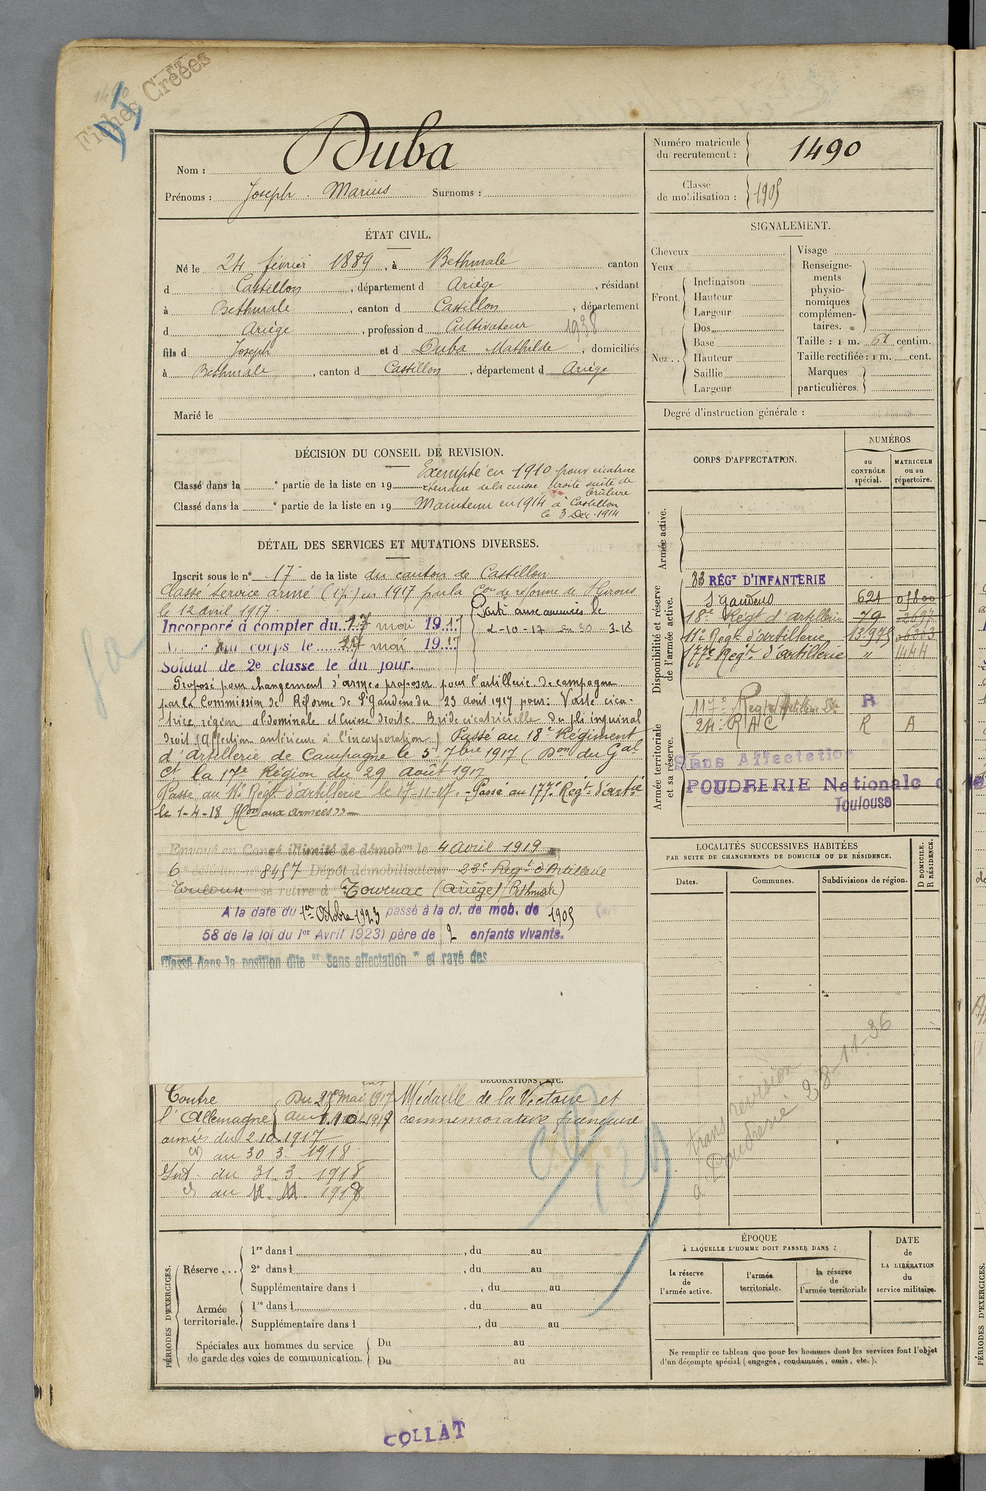 1490
Fiches Créées
Nom : Duba
Prénoms : Joseph Marius Surnoms :
Numéro matricule
du recrutement : 1490
Classe
de mobilisation : 1905
ÉTAT CIVIL.
Né le 24 février 1889, à Bethmale canton
d Castillon, département d Ariège, résidant
à Bethmale, canton d Castillon, département
d Ariège, profession d Cultivateur 1938
fils d Joseph et d Duba Mathilde, domiciliés
à Bethmale, canton d Castillon, département d Ariège
Marié le
SIGNALEMENT.
Cheveux
Yeux
Front. Inclinaison
Hauteur
Largeur
Nez. Dos
Base
Hauteur
Saillie
Largeur
Visage
Renseigne-
ments
physio-
nomiques
complémen-
taires.
Taille : 1 m. 61 centim.
Taille rectifiée : 1 m. cent.
Marques
particulières.
Degré d'instruction générale :
DÉCISION DU CONSEIL DE REVISION.
Exempté en 1910 pour cicatrice
Classé dans la e partie de la liste en 19 étendue de la cuisse droite suite de
brûlure
Classé dans la e partie de la liste en 19 Maintenu en 1914 à Castillon
le 3 Dec. 1914
DÉTAIL DES SERVICES ET MUTATIONS DIVERSES.
Inscrit sous le no 17 de la liste du canton de Castillon
Classé service armé en 1917 par la Con de réforme de St Girons
le 12 avril 1917. Parti aux armées le
Incorporé à compter du 27 mai 1917 2-10-17 au 30-3-18
au corps le mai 1917
Soldat de 2e classe le du jour.
Proposé pour changement d'armes proposer pour l'artillerie de campagne
par la Commission de Réforme de St Gaudens du 23 aout 1917 pour : Vaste cica-
trice région abdominale et cuisse droite. Bride cicatricielle du pli inguinal
droit (Affection antérieure à l'incorporation) Passé au 18e Régiment
d'Artillerie de Campagne le 5 7bre 1917 (Don du Gal
Ct la 17e Région du 29 Août 1917
Passé au 11e Régt d'artillerie le 17-11-17. - Passé au 177e Régt d'artie
le 1-4-18 Mon aux armées
Envoyé en Congé illimité de démobon le 4 Avril 1919
6e échelon no 8457 Dépôt démobilisateur 23e Régt d'Artillerie
Toulouse se retire à Tournac (Ariège) (Bethmale)
A la date du 1er Octobre 1923 passé à la cl. de mob. de 1905
58 de la loi du 1er Avril 1923) père de 2 enfants vivants.
Classé dans la position dite " Sans affectation " et rayé des
DÉCORATIONS, ETC.
Contre Du 27 mai 1917 Médaille de la Victoire et
l'Allemagne au 1919 commémorative française
armées du 2 10 1917
au 30 3 1918
Int. du 31. 3. 1918
au 1918
CORPS D'AFFECTATION.
NUMÉROS
au
CONTRÔLE
spécial.
MATRICULE
ou au
répertoire.
Armée active.
Disponibilité et réserve
de l'armée active.
83 RÉGt D'INFANTERIE
St Gaudens 621
18e Régt d'artillerie 79
11e Régt d'artillerie 13975
177e Régt d'artillerie " 1444
Armée territoriale
et sa réserve.
117e Régt Artillerie R
24e R A C R A
Sans Affectation
POUDRERIE Nationale d
Toulouse
LOCALITÉS SUCCESSIVES HABITÉES
PAR SUITE DE CHANGEMENTS DE DOMICILE OU DE RÉSIDENCE.
Dates.
Communes.
Subdivisions de région.
D DOMICILE.
R RÉSIDENCE.
trans révision
à Poudrerie 28-11-36
PÉRIODES D'EXERCICES.
Réserve . . . 1re dans l , du au
2e dans l , du au
Supplémentaire dans l , du au
Armée
territoriale. 1re dans l , du au
Supplémentaire dans l , du au
Spéciales aux hommes du service
de garde des voies de communication. Du au
Du au
ÉPOQUE
À LAQUELLE L'HOMME DOIT PASSER DANS :
la réserve
de
l'armée active.
l'armée
territoriale.
la réserve
de
l'armée territoriale
DATE
de
LA LIBÉRATION
du
service militaire.
Ne remplir ce tableau que pour les hommes dont les services font l'objet
d'un décompte spécial (engagés, condamnés, omis, etc.).
COLLAT
PÉRIODES D'EXERCICES.